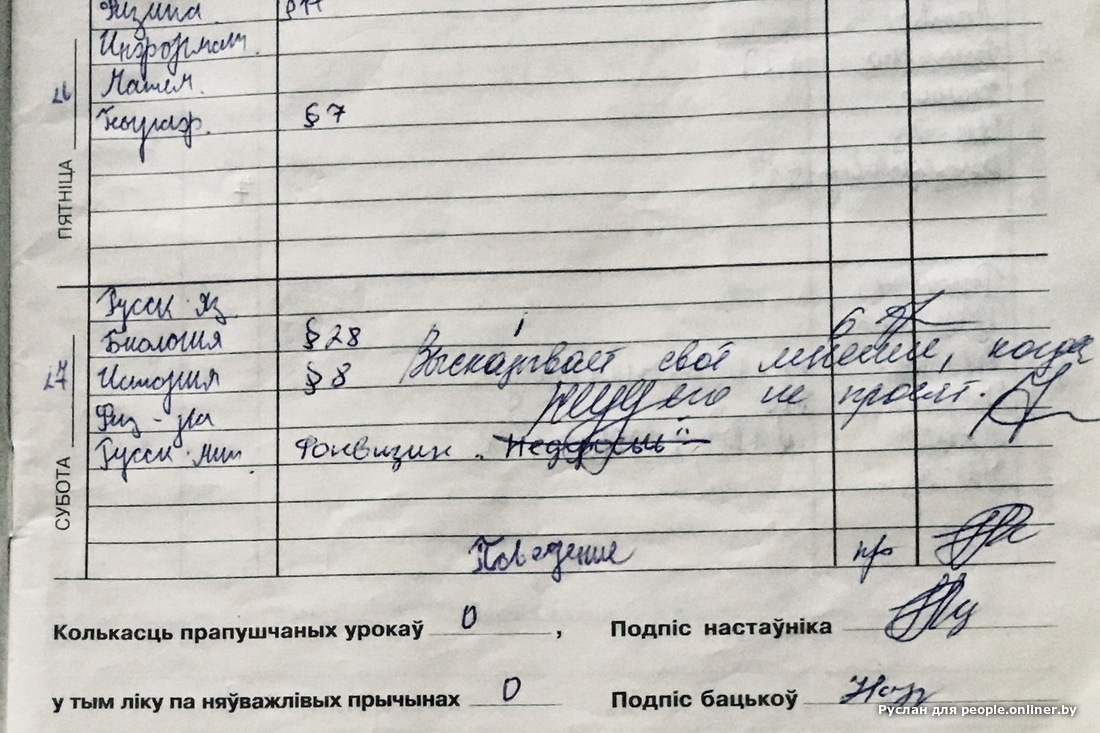 Физика §11
Информат.
Матем.
Географ. §7
26
ПЯТНІЦА
Русск. яз.
Биология §28 6
Высказывает своё мнение, когда
История §8
его не просят.
27
Физ-ра
Русск. лит. Фонвизин „Недоросль"
СУБОТА
Поведение пр
Колькасць прапушчаных урокаў 0 , Подпіс настаўніка
у тым ліку па няўважлівых прычынах 0 Подпіс бацькоў
Руслан для people.onliner.by